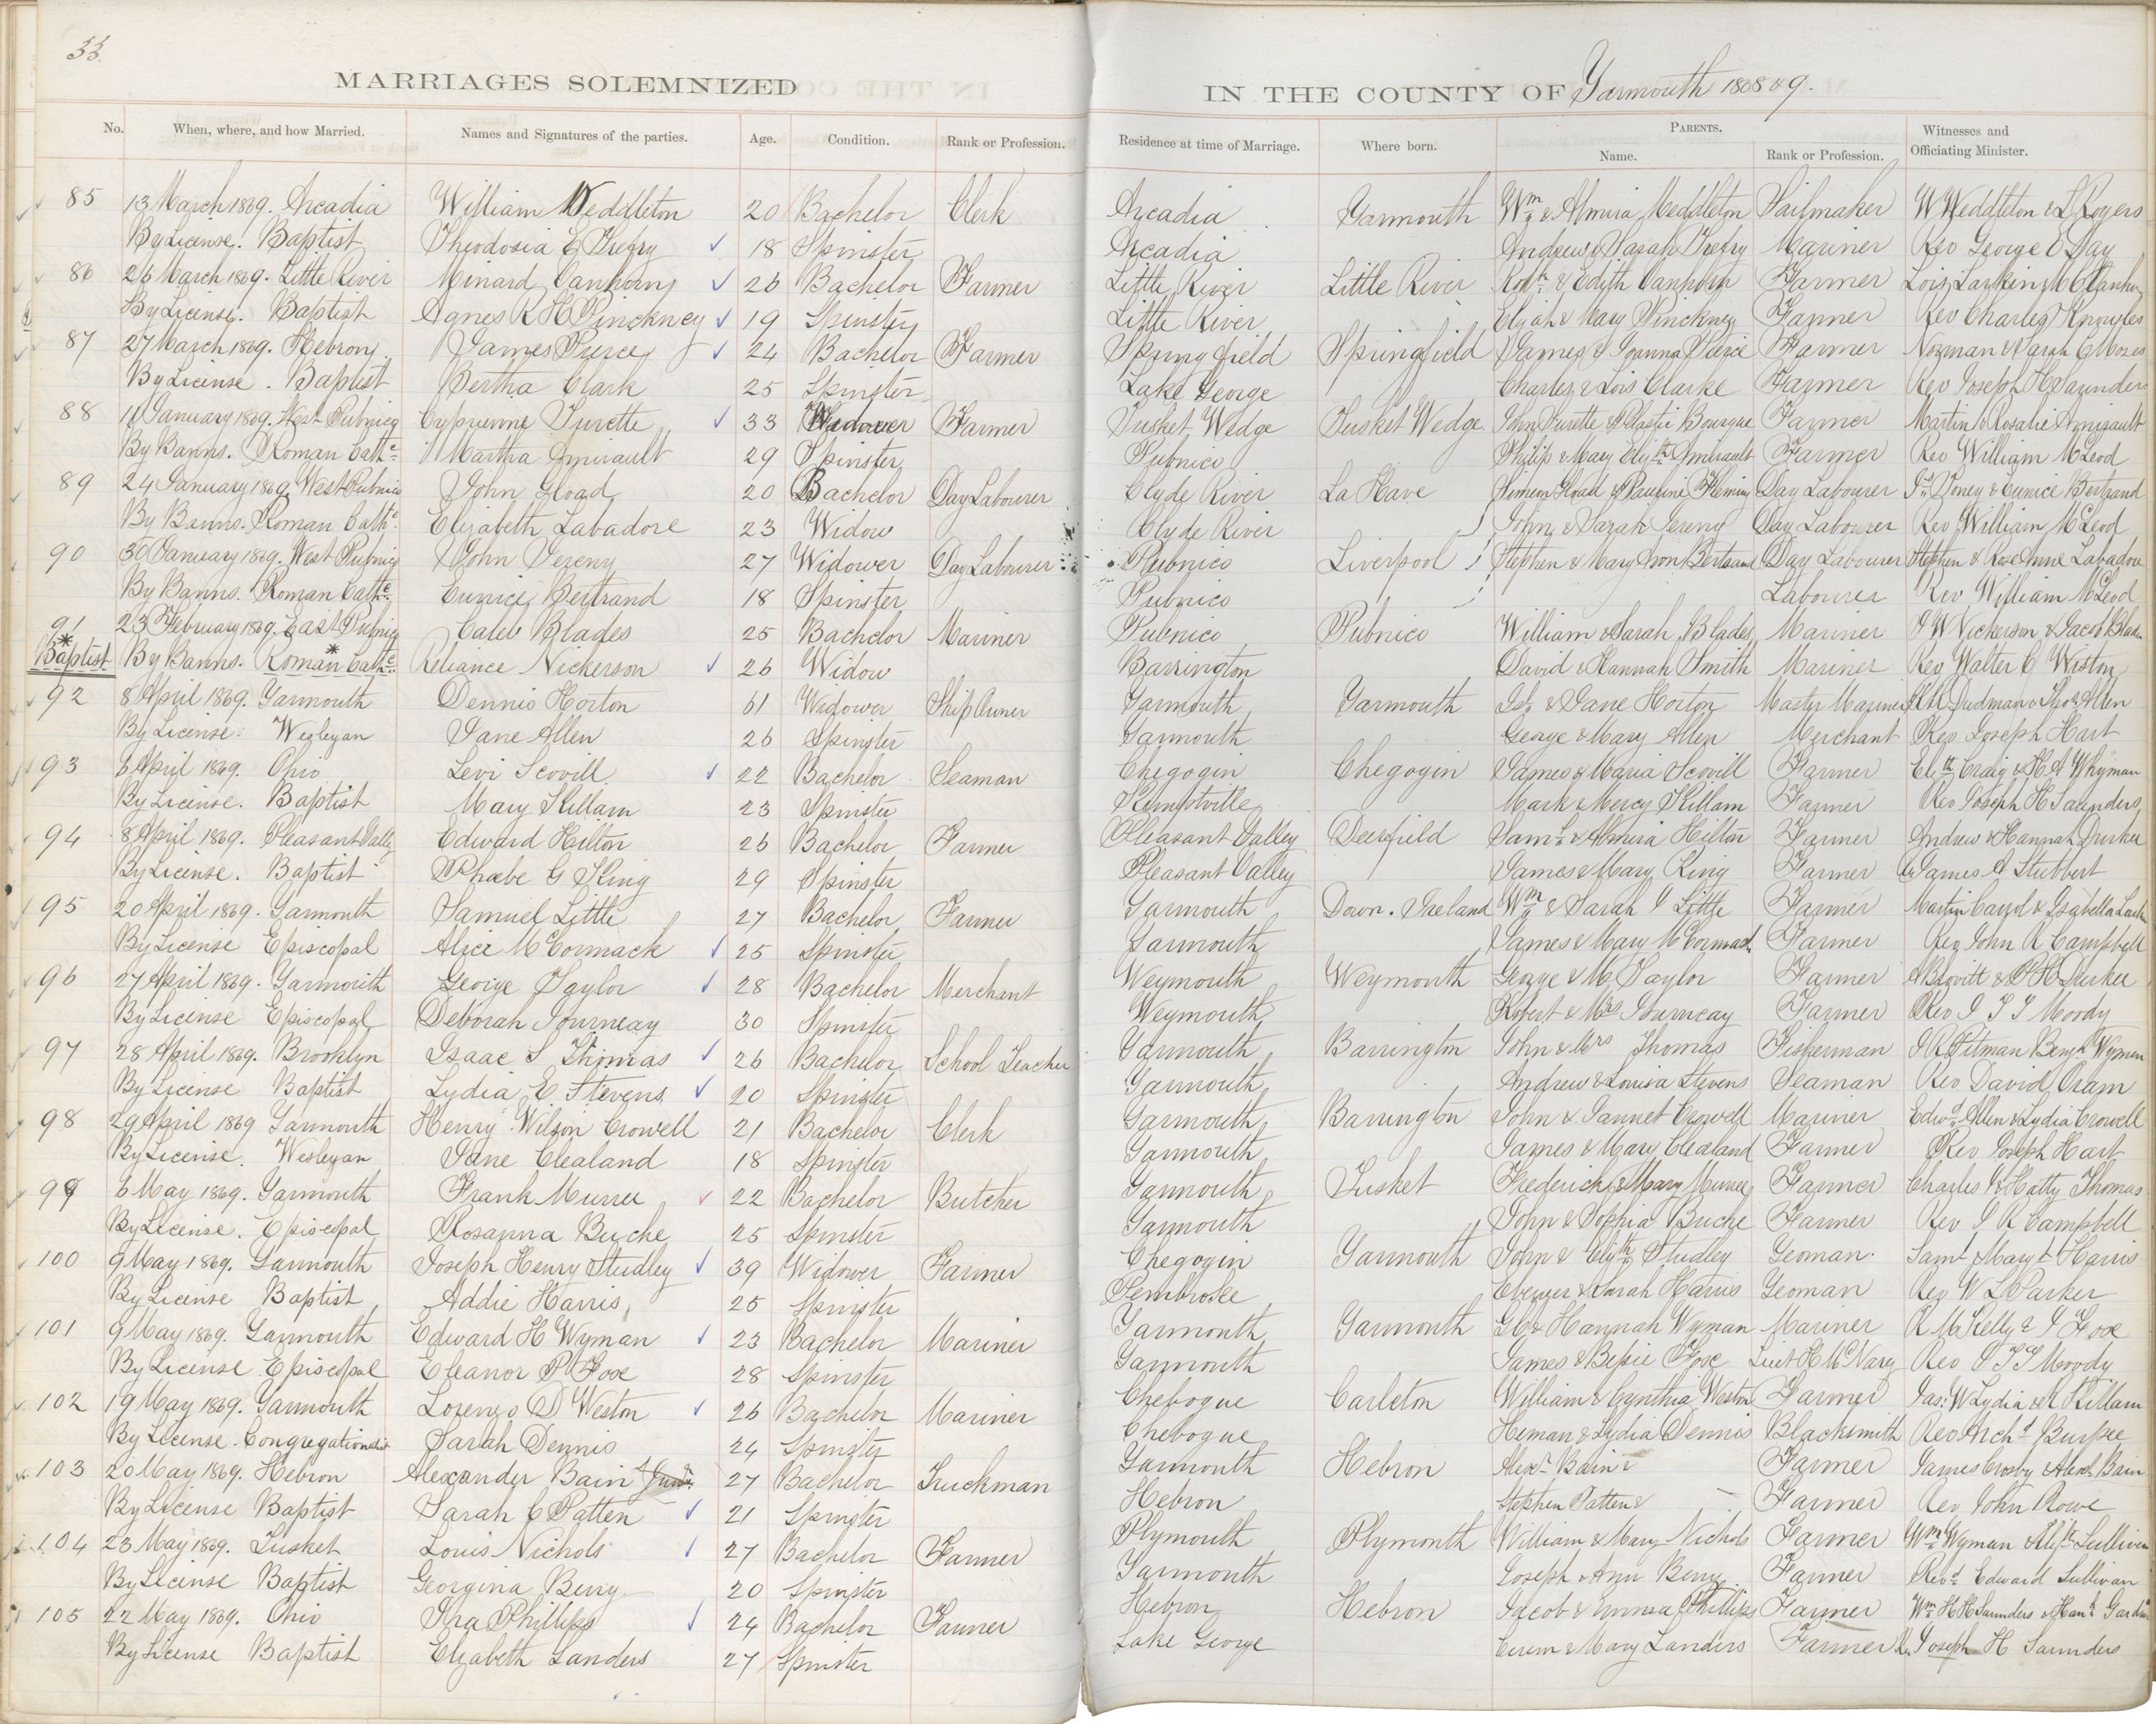 33.
MARRIAGES SOLEMNIZED IN THE COUNTY OF Yarmouth 1868 & 9.
No. When, where, and how Married. Names and Signatures of the parties. Age. Condition. Rank or Profession. Residence at time of Marriage. Where born. PARENTS. Name. Rank or Profession. Witnesses and Officiating Minister.
85 13 March 1869. Arcadia William Weddleton 20 Bachelor Clerk Arcadia Yarmouth Wm & Almira Weddleton Sailmaker W Weddleton & L Rogers
By License. Baptist Theodosia E Trefry 18 Spinster Arcadia Andrew & Sarah Trefry Mariner Rev George E Day
86 26 March 1869. Little River Minard Vanhorn 26 Bachelor Farmer Little River Little River Robt & Edith Vanhorn Farmer Lois Larkin
By License. Baptist Agnes R H Pinckney 19 Spinster Little River Elijah & Mary Pinckney Farmer Rev Charles Knowles
87 27 March 1869. Hebron James Pierce 24 Bachelor Farmer Springfield Springfield James & Joanna Peirce Farmer Norman & Sarah C Moses
By License. Baptist Bertha Clark 25 Spinster Lake George Charles & Lois Clarke Farmer Rev Joseph H Saunders
88 11 January 1869. West Pubnico Cyprienne Surette 33 Widower Farmer Tusket Wedge Tusket Wedge John Surette & Bourque Farmer Martin & Rosalie Amirault
By Banns. Roman Cathc Martha Amirault 29 Spinster Pubnico Philip & Mary Elizth Amirault Farmer Rev William McLeod
89 24 January 1869. West Pubnico John Gload 20 Bachelor Day Labourer Clyde River La Have Simeon Gload & Pauline Fleming Day Labourer & Eunice Bertrand
By Banns. Roman Cathc Elizabeth Labadore 23 Widow Clyde River John & Sarah Jereny Day Labourer Rev William McLeod
90 30 January 1869. West Pubnico John Jereny 27 Widower Day Labourer Pubnico Liverpool Stephen & Mary Ann Bertrand Day Labourer Stephen & Rose Anne Labadore
By Banns. Roman Cathc Eunice Bertrand 18 Spinster Pubnico Labourer Rev William McLeod
91 23 February 1869. East Pubnico Caleb Blades 25 Bachelor Mariner Pubnico Pubnico William & Sarah Blades Mariner J W Nickerson & Jacob Blades
*Baptist By Banns. Roman* Cathc Reliance Nickerson 26 Widow Barrington David & Hannah Smith Mariner Rev Walter C Weston
92 8 April 1869. Yarmouth Dennis Horton 61 Widower Ship Owner Yarmouth Yarmouth & Jane Horton Master Mariner Dudman & Thos Allen
By License. Wesleyan Jane Allen 26 Spinster Yarmouth George & Mary Allen Merchant Rev Joseph Hart
93 6 April 1869. Ohio Levi Scovill 22 Bachelor Seaman Chegogin Chegogin James & Maria Scovill Farmer Elizth Craig & H A Whyman
By License. Baptist Mary Killam 23 Spinster Kemptville Mark & Mercy Killam Farmer Rev Joseph H Saunders
94 8 April 1869. Pleasant Valley Edward Hilton 26 Bachelor Farmer Pleasant Valley Deerfield Saml & Almira Hilton Farmer Andrew & Hannah Durkee
By License. Baptist Phoebe G King 29 Spinster Pleasant Valley James & Mary King Farmer James A Stubbert
95 20 April 1869. Yarmouth Samuel Little 27 Bachelor Farmer Yarmouth Down. Ireland Wm & Sarah J Little Farmer Martin Caryd & Isabella
By License Episcopal Alice McCormack 25 Spinster Yarmouth James & Mary McCormack Farmer Rev John R Campbell
96 27 April 1869. Yarmouth George Taylor 28 Bachelor Merchant Weymouth Weymouth George & M Taylor Farmer & P H Durkee
By License Episcopal Deborah Journeay 30 Spinster Weymouth Robert & Mrs Journeay Farmer Rev J T T Moody
97 28 April 1869. Brooklyn Isaac S Thomas 26 Bachelor School Teacher Yarmouth Barrington John & Mrs Thomas Fisherman J R Pitman Benjn Wyman
By License Baptist Lydia E. Stevens 20 Spinster Yarmouth Andrew & Louisa Stevens Seaman Rev David Oram
98 29 April 1869 Yarmouth Henry Wilson Crowell 21 Bachelor Clerk Yarmouth Barrington John & Jannet Crowell Mariner Edwd Allen & Lydia Crowell
By License. Wesleyan Jane Clealand 18 Spinster Yarmouth James & Mary Clealand Farmer Rev Joseph Hart
99 6 May 1869. Yarmouth Frank Murree 22 Bachelor Butcher Yarmouth Tusket Frederick & Mary Murree Farmer Charles & Hatty Thomas
By License. Episcopal Rosanna Buche 25 Spinster Yarmouth John & Sophia Buche Farmer Rev J R Campbell
100 9 May 1869. Yarmouth Joseph Henry Studley 39 Widower Farmer Chegogin Yarmouth John & Elizth Studley Yeoman. Saml & Mary L Harris
By License Baptist Addie Harris 25 Spinster Pembroke Ebenezer & Sarah Harris Yeoman Rev W L Parker
101 9 May 1869. Yarmouth Edward H Wyman 23 Bachelor Mariner Yarmouth Yarmouth & Hannah Wyman Mariner R M Kelly & J Foxe
By License Episcopal Eleanor P Foxe 28 Spinster Yarmouth James & Bessie Foxe Lieut H M Navy Rev J T T Moody
102 19 May 1869. Yarmouth Lorenzo D Weston 26 Bachelor Mariner Chebogue Carleton William & Cynthia Weston Farmer Jas. W Lydia & R Killam
By License. Congregationalist Sarah Dennis 24 Spinster Chebogue Heman & Lydia Dennis Blacksmith Rev Archd Burpee
103 20 May 1869. Hebron Alexander Bain Junr. 27 Bachelor Truckman Yarmouth Hebron Alexr Bain & Farmer James Crosby & Bain
By License Baptist Sarah C Patten 21 Spinster Hebron Stephen Patten & – Farmer Rev John Rowe
104 23 May 1869. Tusket Louis Nichols 27 Bachelor Farmer Plymouth Plymouth William & Mary Nichols Farmer Wm Wyman & Sullivan
By License Baptist Georgina Berry 20 Spinster Yarmouth Joseph & Ann Berry Farmer Revd Edward Sullivan
105 22 May 1869. Ohio Ira Phillips 24 Bachelor Farmer Hebron Hebron Jacob & Phillips Farmer Wm H H Saunders & Hanh
By License Baptist Elizabeth Landers 27 Spinster Lake George & Mary Landers Farmer Rev Joseph H Saunders